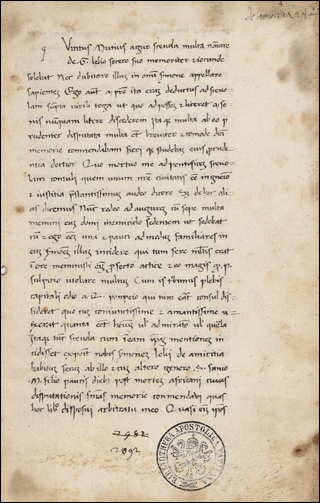 de amicitia
Q Vintus Mutius augur sceuola multa narrare
de .C. lelio socero suo memoriter et iocunde
solebat Nec dubitare illũ in omĩ sermone appellare
sapientem Ego aut̃ a p̃re ita erã deductus ad sceuo
lam sũpta uirili toga ut quo ad possez et liceret a se
nis nunquam latere discederem Itaq̃ multa ab eo p
rudenter disputata multa et̃ breuiter et comode dicta
memorie commendabam fieriq̃ studebaz eius pruden
tia doctior Quo mortuo me ad pontificem sceuo
lam contuli quem unum nr̃e ciuitatis et ingenio
et iustitia p̃stantissimuz audeo dicere Sz de hoc ali
as dicemus Nũc redeo ad augurez cũ sepe multa
memini eũ domi in emiciclo sedentem ut solebat
cũ et ego eẽm una et pauci admoduz familiares in
eũ sermonez illuz incidere qui tum fere multis erat
in ore meministi eĩ profecto actice et eo magis q̃ .P.
sulpitio utebare multuz Cum is tribunus plebis
capitali odio a .Q. pompeio qui tum erat consul dis
sideret quo cuz coniunctissime et amantissime ui
xerat quanta eẽt hoĩuz uel admiratio uel querela
Itaq̃ tũc sceuola cum in eam ip̃az mentionez in
cidisset exposuit nobis sermonez lelij de amicitia
habituz secuz ab illo et cuz altero genero .G. fanio
.M. filio paucis diebuz post mortez africani cuius
disputationis sñias memorie commendabi quas
hoc libro disposui arbitratu meo Quasi eĩ ip̃os
2982
2892
BIBLIOTHECA APOSTOLICA VATICANA